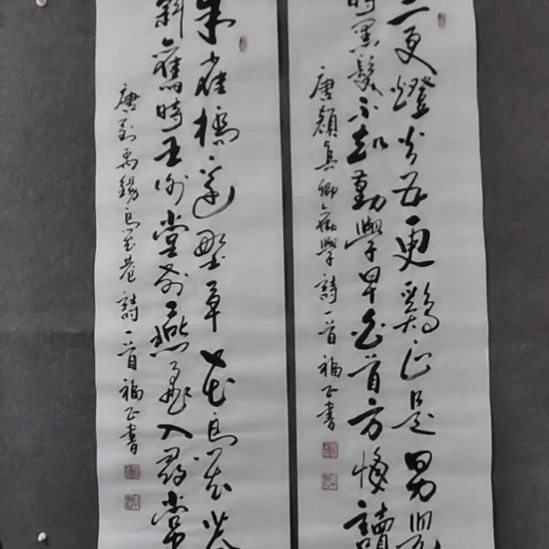 三更燈火五更鷄正是男兒
時黑髮不知勤學早白首方悔讀
唐顔真卿勸學詩一首福正書
朱雀橋邊野草花烏衣巷
斜舊時王謝堂前燕飛入尋常
唐劉禹錫烏衣巷詩一首福正書